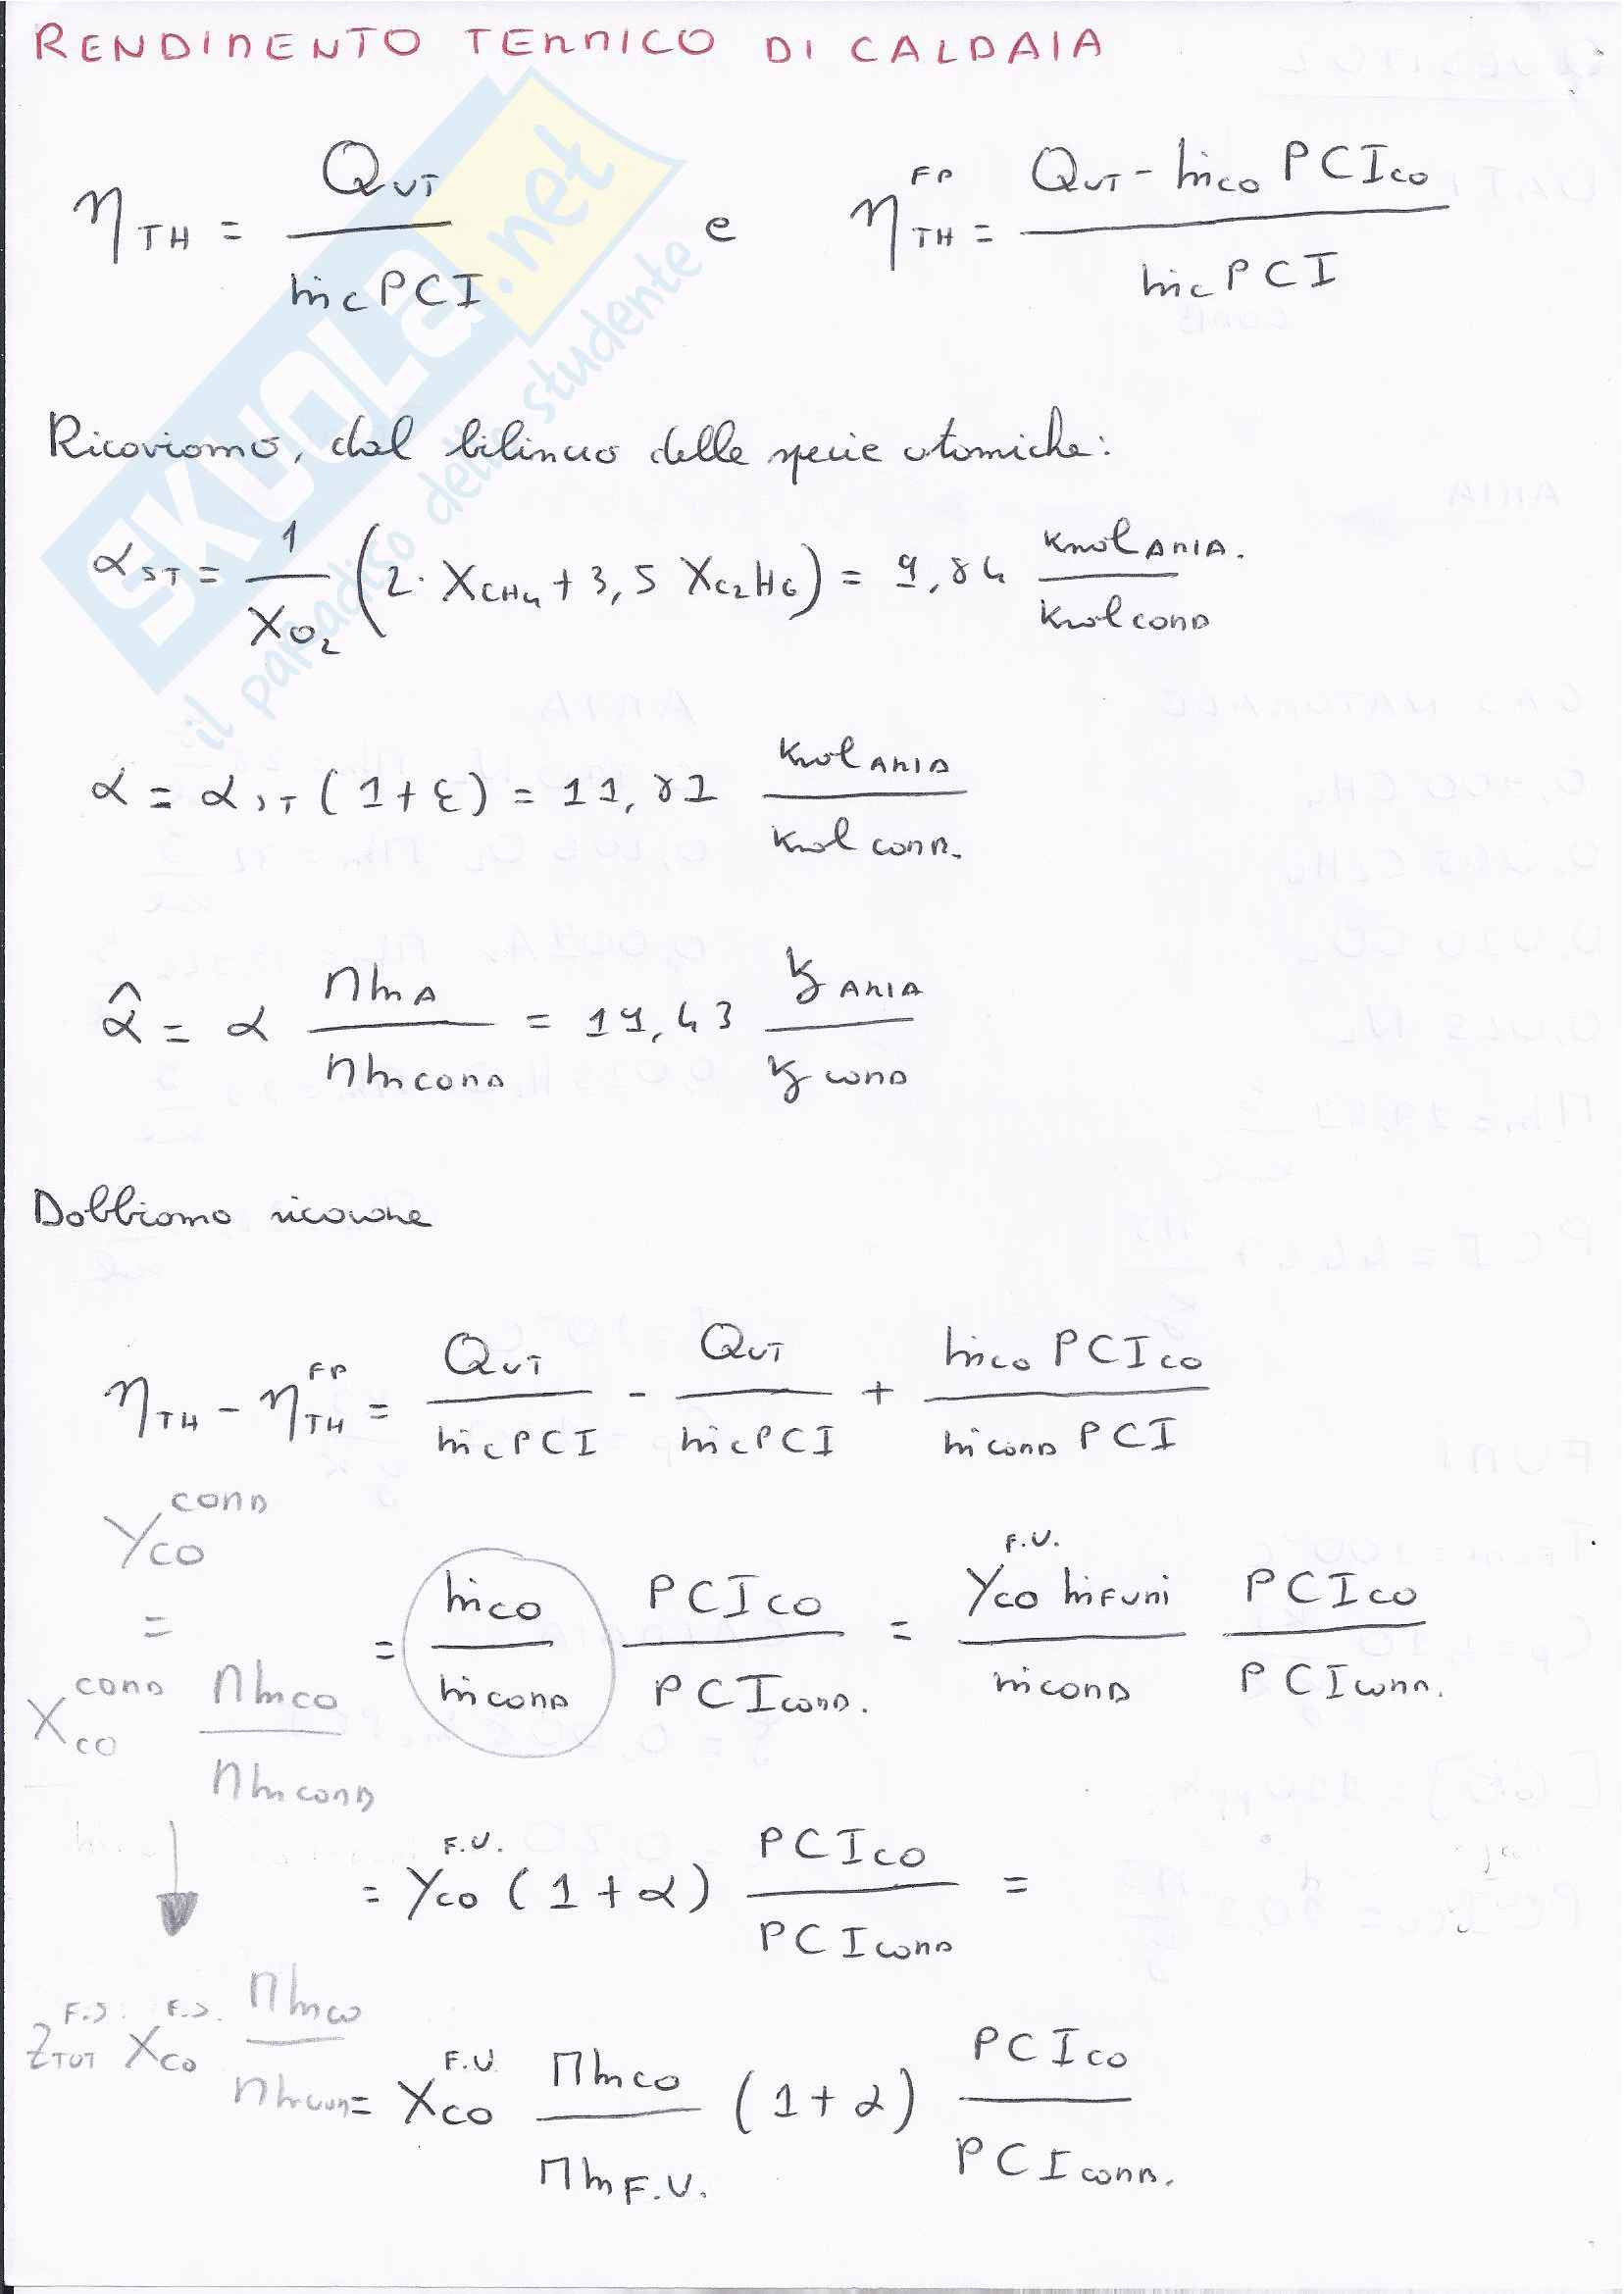 RENDIMENTO TERMICO DI CALDAIA
η_TH = Q_UT / (ṁ_C PCI) e η_TH^FP = (Q_UT - ṁ_CO PCI_CO) / (ṁ_C PCI)
Ricaviamo, dal bilancio delle specie atomiche:
α_ST = 1 / X_O2 (2· X_CH4 + 3,5 X_C2H6) = 9,84 kmol ARIA. / kmol COMB
α = α_ST (1+ε) = 11,81 kmol ARIA / kmol COMB.
α̂ = α Mm_A / Mm_COMB = 19,43 kg ARIA / kg COMB
Dobbiamo ricavare
η_TH - η_TH^FP = Q_UT / (ṁ_C PCI) - Q_UT / (ṁ_C PCI) + (ṁ_CO PCI_CO) / (ṁ_COMB PCI)
Y_CO^COMB
= X_CO^COMB Mm_CO / Mm_COMB
= ṁ_CO / ṁ_COMB PCI_CO / PCI_COMB. = (Y_CO^F.U. ṁ_FUMI) / ṁ_COMB PCI_CO / PCI_COMB.
= Y_CO^F.U. (1+α) PCI_CO / PCI_COMB =
Z_TOT^F.S. X_CO^F.S. Mm_CO / Mm_COMB
= X_CO^F.U. Mm_CO / Mm_F.U. (1+α) PCI_CO / PCI_COMB.
SKUOLA.net
il paradiso dello studente